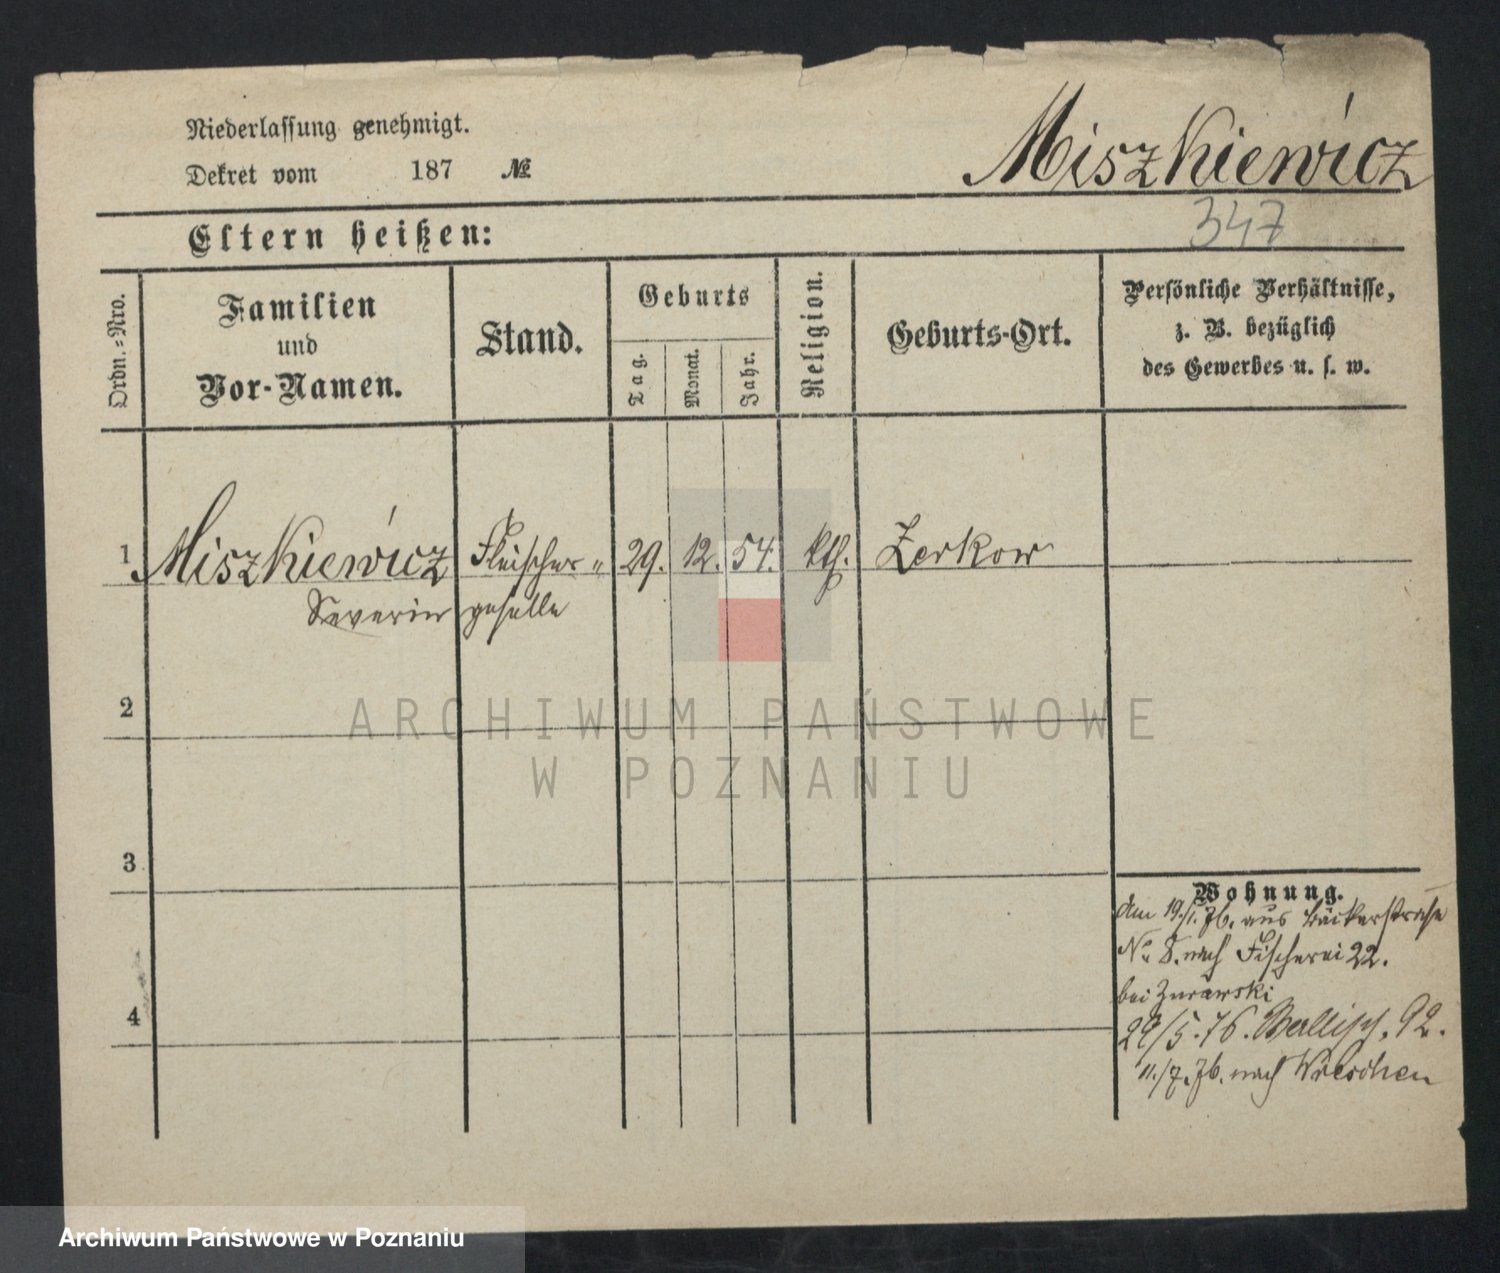 Niederlassung genehmigt.
Dekret vom 187 №
Miszkiewicz
347
Eltern heißen:
Ordn.-Nro.
Familien
und
Vor-Namen.
Stand.
Geburts
Tag.
Monat.
Jahr.
Religion.
Geburts-Ort.
Persönliche Verhältnisse,
z. B. bezüglich
des Gewerbes u. s. w.
1 Miszkiewicz Fleischer- 29. 12. 54. kth. Zerkow
Severin geselle
2
3
4
Wohnung.
Am 19./1. 76. aus Bäckerstraße
No 8. nach Fischerei 22.
bei Zurawski
29/5. 76. Wallisch. 92.
11./7. 76. nach Wreschen
ARCHIWUM PAŃSTWOWE
W POZNANIU
Archiwum Państwowe w Poznaniu